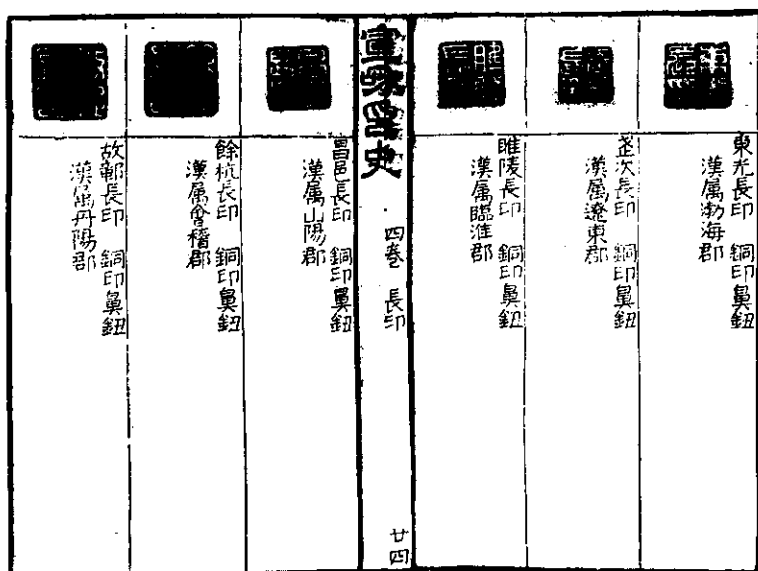 東光長印 銅印鼻鈕
漢属渤海郡
銅印鼻鈕
漢属遼東郡
睢陵長印 銅印鼻鈕
漢属臨淮郡
四卷 長印
廿四
昌邑長印 銅印鼻鈕
漢属山陽郡
餘杭長印 銅印鼻鈕
漢属會稽郡
故鄣長印 銅印鼻鈕
漢属丹陽郡